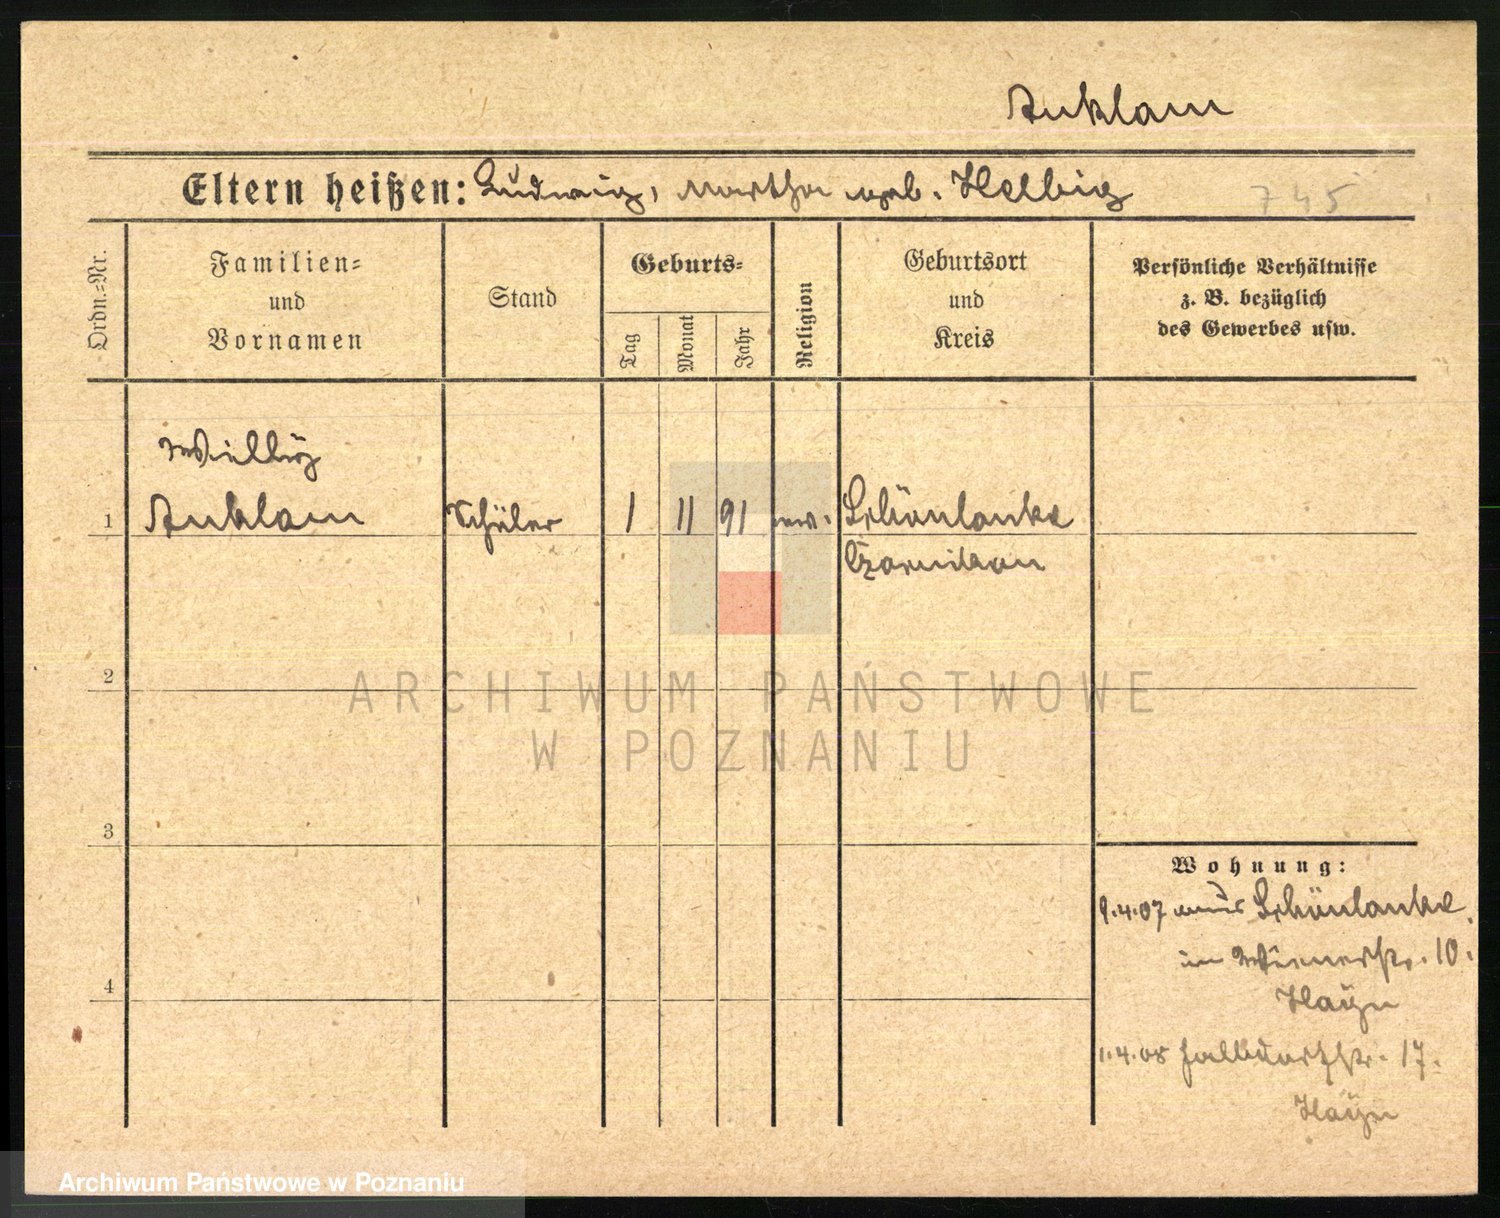 Anklam
Eltern heißen: Ludwig, Martha geb. Helbig
745
Ordn.=Nr.
Familien=
und
Vornamen
Stand
Geburts=
Tag
Monat
Jahr
Religion
Geburtsort
und
Kreis
Persönliche Verhältnisse
z. B. bezüglich
des Gewerbes usw.
Willy
1 Anklam Schüler 1 11 91 ev. Schönlanke
Czarnikau
2
ARCHIWUM PAŃSTWOWE
W POZNANIU
3
Wohnung:
9.4.07 aus Schönlanke.
in Wienerstr. 10.
Hayn
4
1.4.08 Halbdorfstr. 17.
Hayn
Archiwum Państwowe w Poznaniu